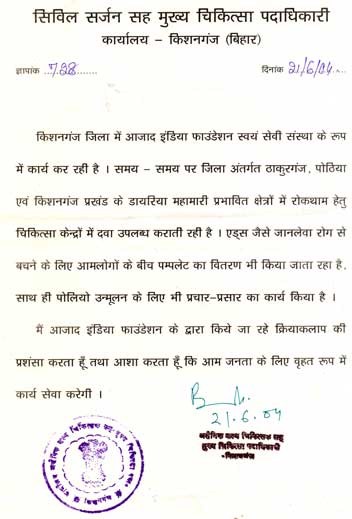 सिविल सर्जन सह मुख्य चिकित्सा पदाधिकारी
कार्यालय – किशनगंज (बिहार)
ज्ञापांक ...728........ दिनांक 21/6/04.....
किशनगंज जिला में आजाद इंडिया फाउंडेशन स्वयं सेवी संस्था के रूप
में कार्य कर रही है । समय – समय पर जिला अंतर्गत ठाकुरगंज, पोठिया
एवं किशनगंज प्रखंड के डायरिया महामारी प्रभावित क्षेत्रों में रोकथाम हेतु
चिकित्सा केन्द्रों में दवा उपलब्ध कराती रही है । एड्स जैसे जानलेवा रोग से
बचने के लिए आमलोगों के बीच पम्पलेट का वितरण भी किया जाता रहा है,
साथ ही पोलियो उन्मूलन के लिए भी प्रचार-प्रसार का कार्य किया है ।
मैं आजाद इंडिया फाउंडेशन के द्वारा किये जा रहे क्रियाकलाप की
प्रशंसा करता हूँ तथा आशा करता हूँ कि आम जनता के लिए वृहत रूप में
कार्य सेवा करेगी ।
21.6.04
असैनिक शल्य चिकित्सक सह
मुख्य चिकित्सा पदाधिकारी
किशनगंज